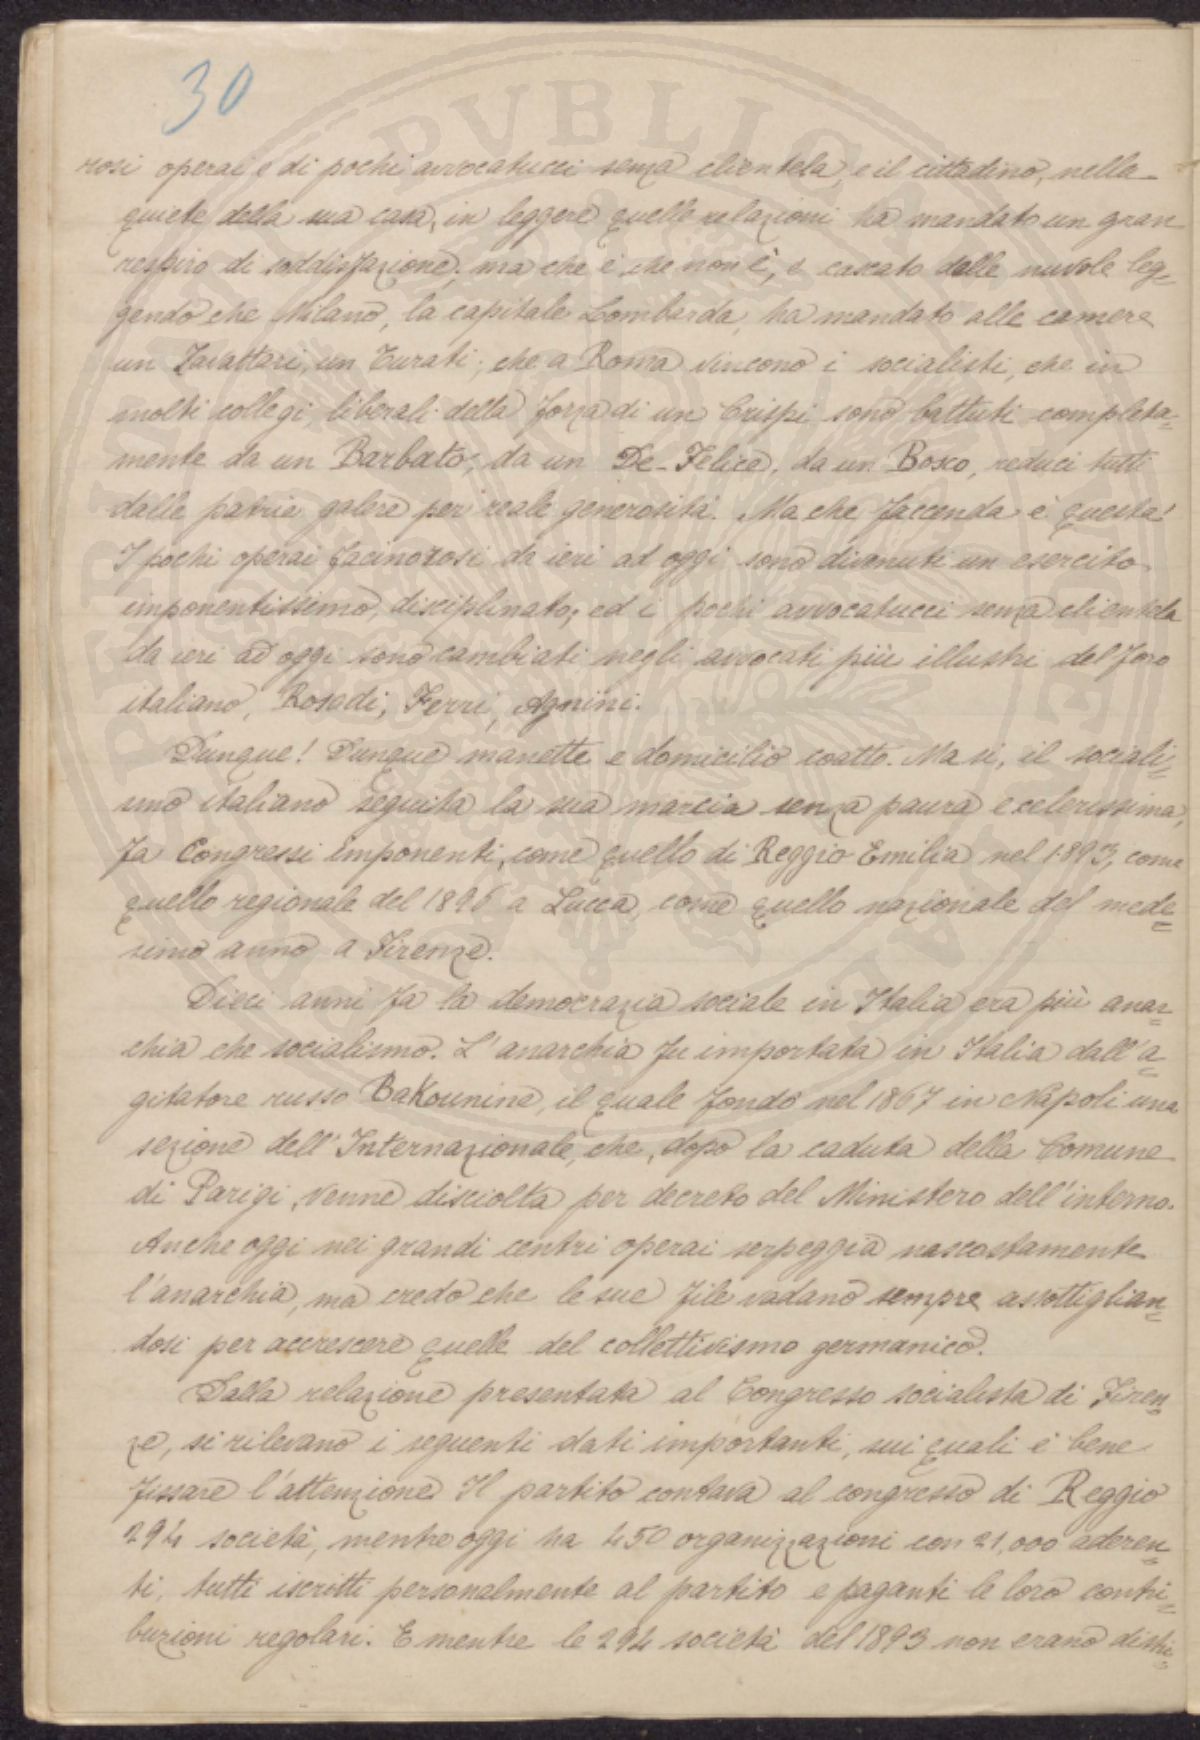 30
rosi operai e di pochi avvocatucci senza clientela, e il cittadino, nella
quiete della sua casa, in leggere quelle relazioni ha mandato un gran
respiro di soddisfazione; ma che è che non è, è cascato dalle nuvole leg-
gendo che Milano, la capitale Lombarda, ha mandato alle camere
un Zavattari, un Turati; che a Roma vincono i socialisti, che in
molti collegi, liberali della forza di un Crispi sono battuti completa-
mente da un Barbato, da un De-Felice, da un Bosco, reduci tutti
dalle patrie galere per reale generosità. Ma che faccenda è questa!
I pochi operai facinorosi da ieri ad oggi sono divenuti un esercito
imponentissimo, disciplinato; ed i pochi avvocatucci senza clientela
da ieri ad oggi sono cambiati negli avvocati più illustri del foro
italiano, Rosadi, Ferri, Agnini.
Dunque! Dunque manette e domicilio coatto. Ma si, il sociali-
smo italiano seguita la sua marcia senza paura e celerissima,
fa Congressi imponenti, come quello di Reggio Emilia nel 1893, come
quello regionale del 1896 a Lucca, come quello nazionale del mede-
simo anno a Firenze.
Dieci anni fa la democrazia sociale in Italia era più anar-
chia che socialismo. L'anarchia fu importata in Italia dall'a-
gitatore russo Bakounine, il quale fondò nel 1867 in Napoli una
sezione dell'Internazionale, che, dopo la caduta della Comune
di Parigi, venne disciolta per decreto del Ministero dell'interno.
Anche oggi nei grandi centri operai serpeggia nascostamente
l'anarchia, ma credo che le sue file vadano sempre assottiglian-
dosi per accrescere quelle del collettivismo germanico.
Dalla relazione presentata al Congresso socialista di Firen-
ze, si rilevano i seguenti dati importanti, sui quali è bene
fissare l'attenzione. Il partito contava al congresso di Reggio
294 società, mentre oggi ha 450 organizzazioni con 21,000 aderen-
ti, tutti iscritti personalmente al partito e paganti le loro contri-
buzioni regolari. E mentre le 294 società del 1893 non erano distri-